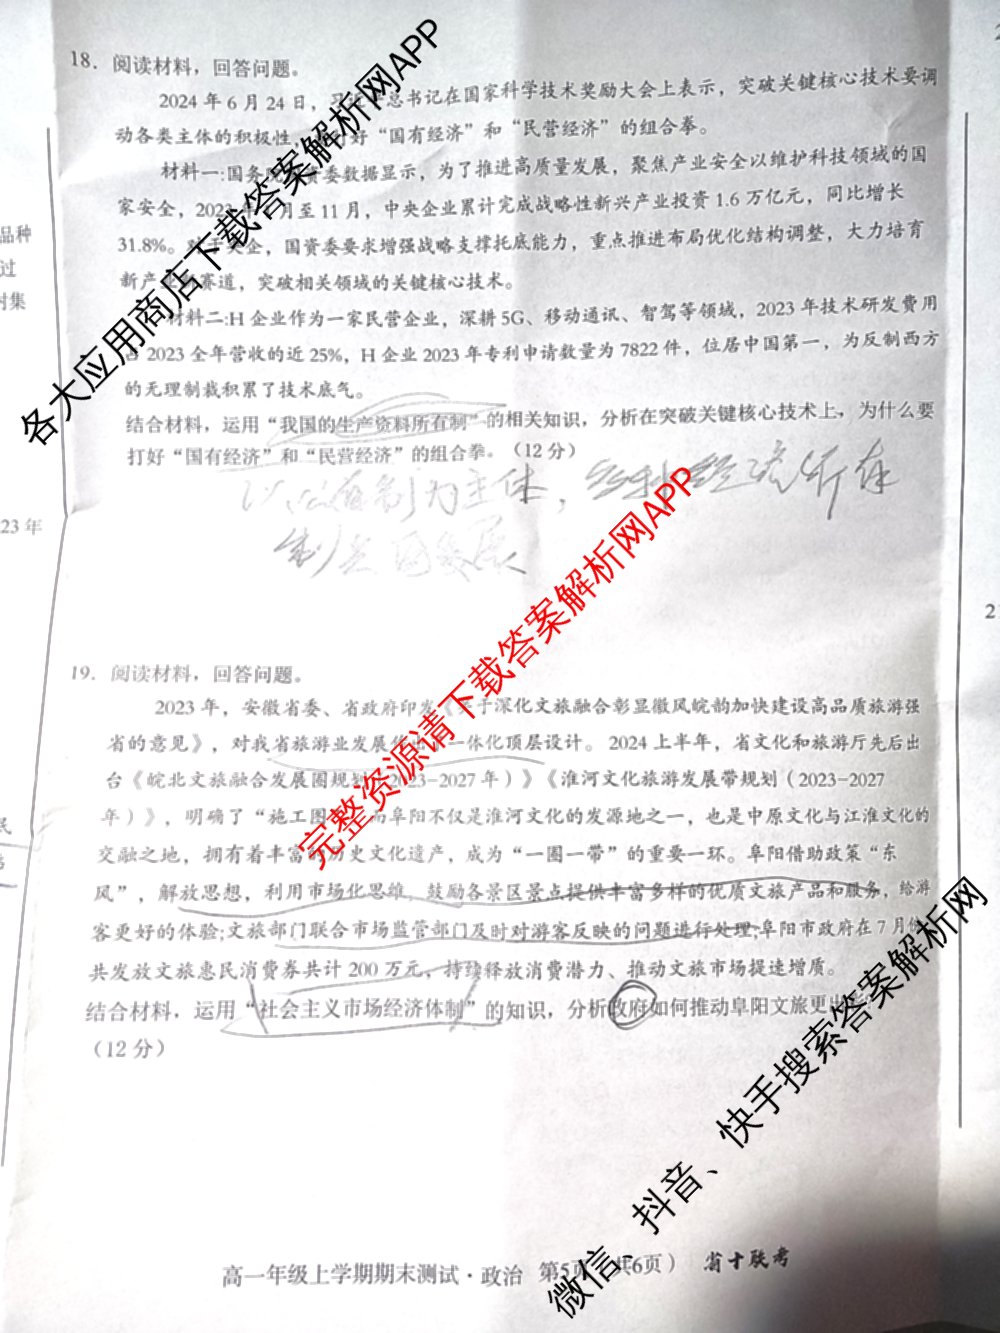 18. 阅读材料，回答问题。
2024年6月24日，习近平总书记在国家科学技术奖励大会上表示，突破关键核心技术要调
动各类主体的积极性，好“国有经济”和“民营经济”的组合拳。
材料一:国务院国资委数据显示，为了推进高质量发展，聚焦产业安全以维护科技领域的国
家安全，2023年月至11月，中央企业累计完成战略性新兴产业投资1.6万亿元，同比增长
31.8%。对于央企，国资委要求增强战略支撑托底能力，重点推进布局优化结构调整，大力培育
新产业新赛道，突破相关领域的关键核心技术。
材料二:H企业作为一家民营企业，深耕5G、移动通讯、智驾等领域，2023年技术研发费用
占2023全年营收的近25%，H企业2023年专利申请数量为7822件，位居中国第一，为反制西方
的无理制裁积累了技术底气。
结合材料，运用“我国的生产资料所有制”的相关知识，分析在突破关键核心技术上，为什么要
打好“国有经济”和“民营经济”的组合拳。（12分）
以公有制为主体，多种经济所有
制共同发展
19. 阅读材料，回答问题。
2023年，安徽省委、省政府印发《关于深化文旅融合彰显徽风皖韵加快建设高品质旅游强
省的意见》，对我省旅游业发展作出一体化顶层设计。2024上半年，省文化和旅游厅先后出
台《皖北文旅融合发展圈规划（2023-2027年）》《淮河文化旅游发展带规划（2023-2027
年）》，明确了“施工图”。而阜阳不仅是淮河文化的发源地之一，也是中原文化与江淮文化的
交融之地，拥有着丰富的历史文化遗产，成为“一圈一带”的重要一环。阜阳借助政策“东
风”，解放思想，利用市场化思维，鼓励各景区景点提供丰富多样的优质文旅产品和服务，给游
客更好的体验;文旅部门联合市场监管部门及时对游客反映的问题进行处理;阜阳市政府在7月份
共发放文旅惠民消费券共计200万元，持续释放消费潜力、推动文旅市场提速增质。
结合材料，运用“社会主义市场经济体制”的知识，分析政府如何推动阜阳文旅更出
（12分）
高一年级上学期期末测试·政治 第5页（共6页） 省十联考
品种
过
对集
23年
民
2
2
各大应用商店下载答案解析网APP
完整资源请下载答案解析网APP
微信、抖音、快手搜索答案解析网